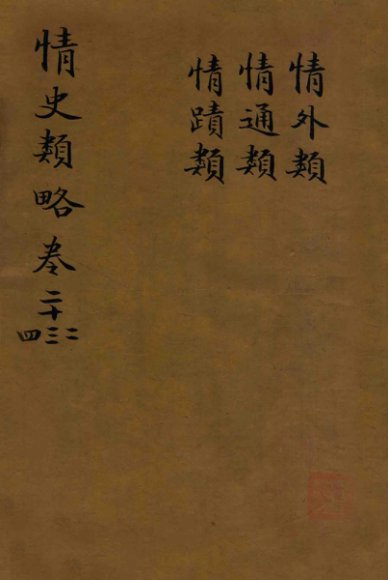 情外類
情通類
情蹟類
情史類略卷二十
二三四